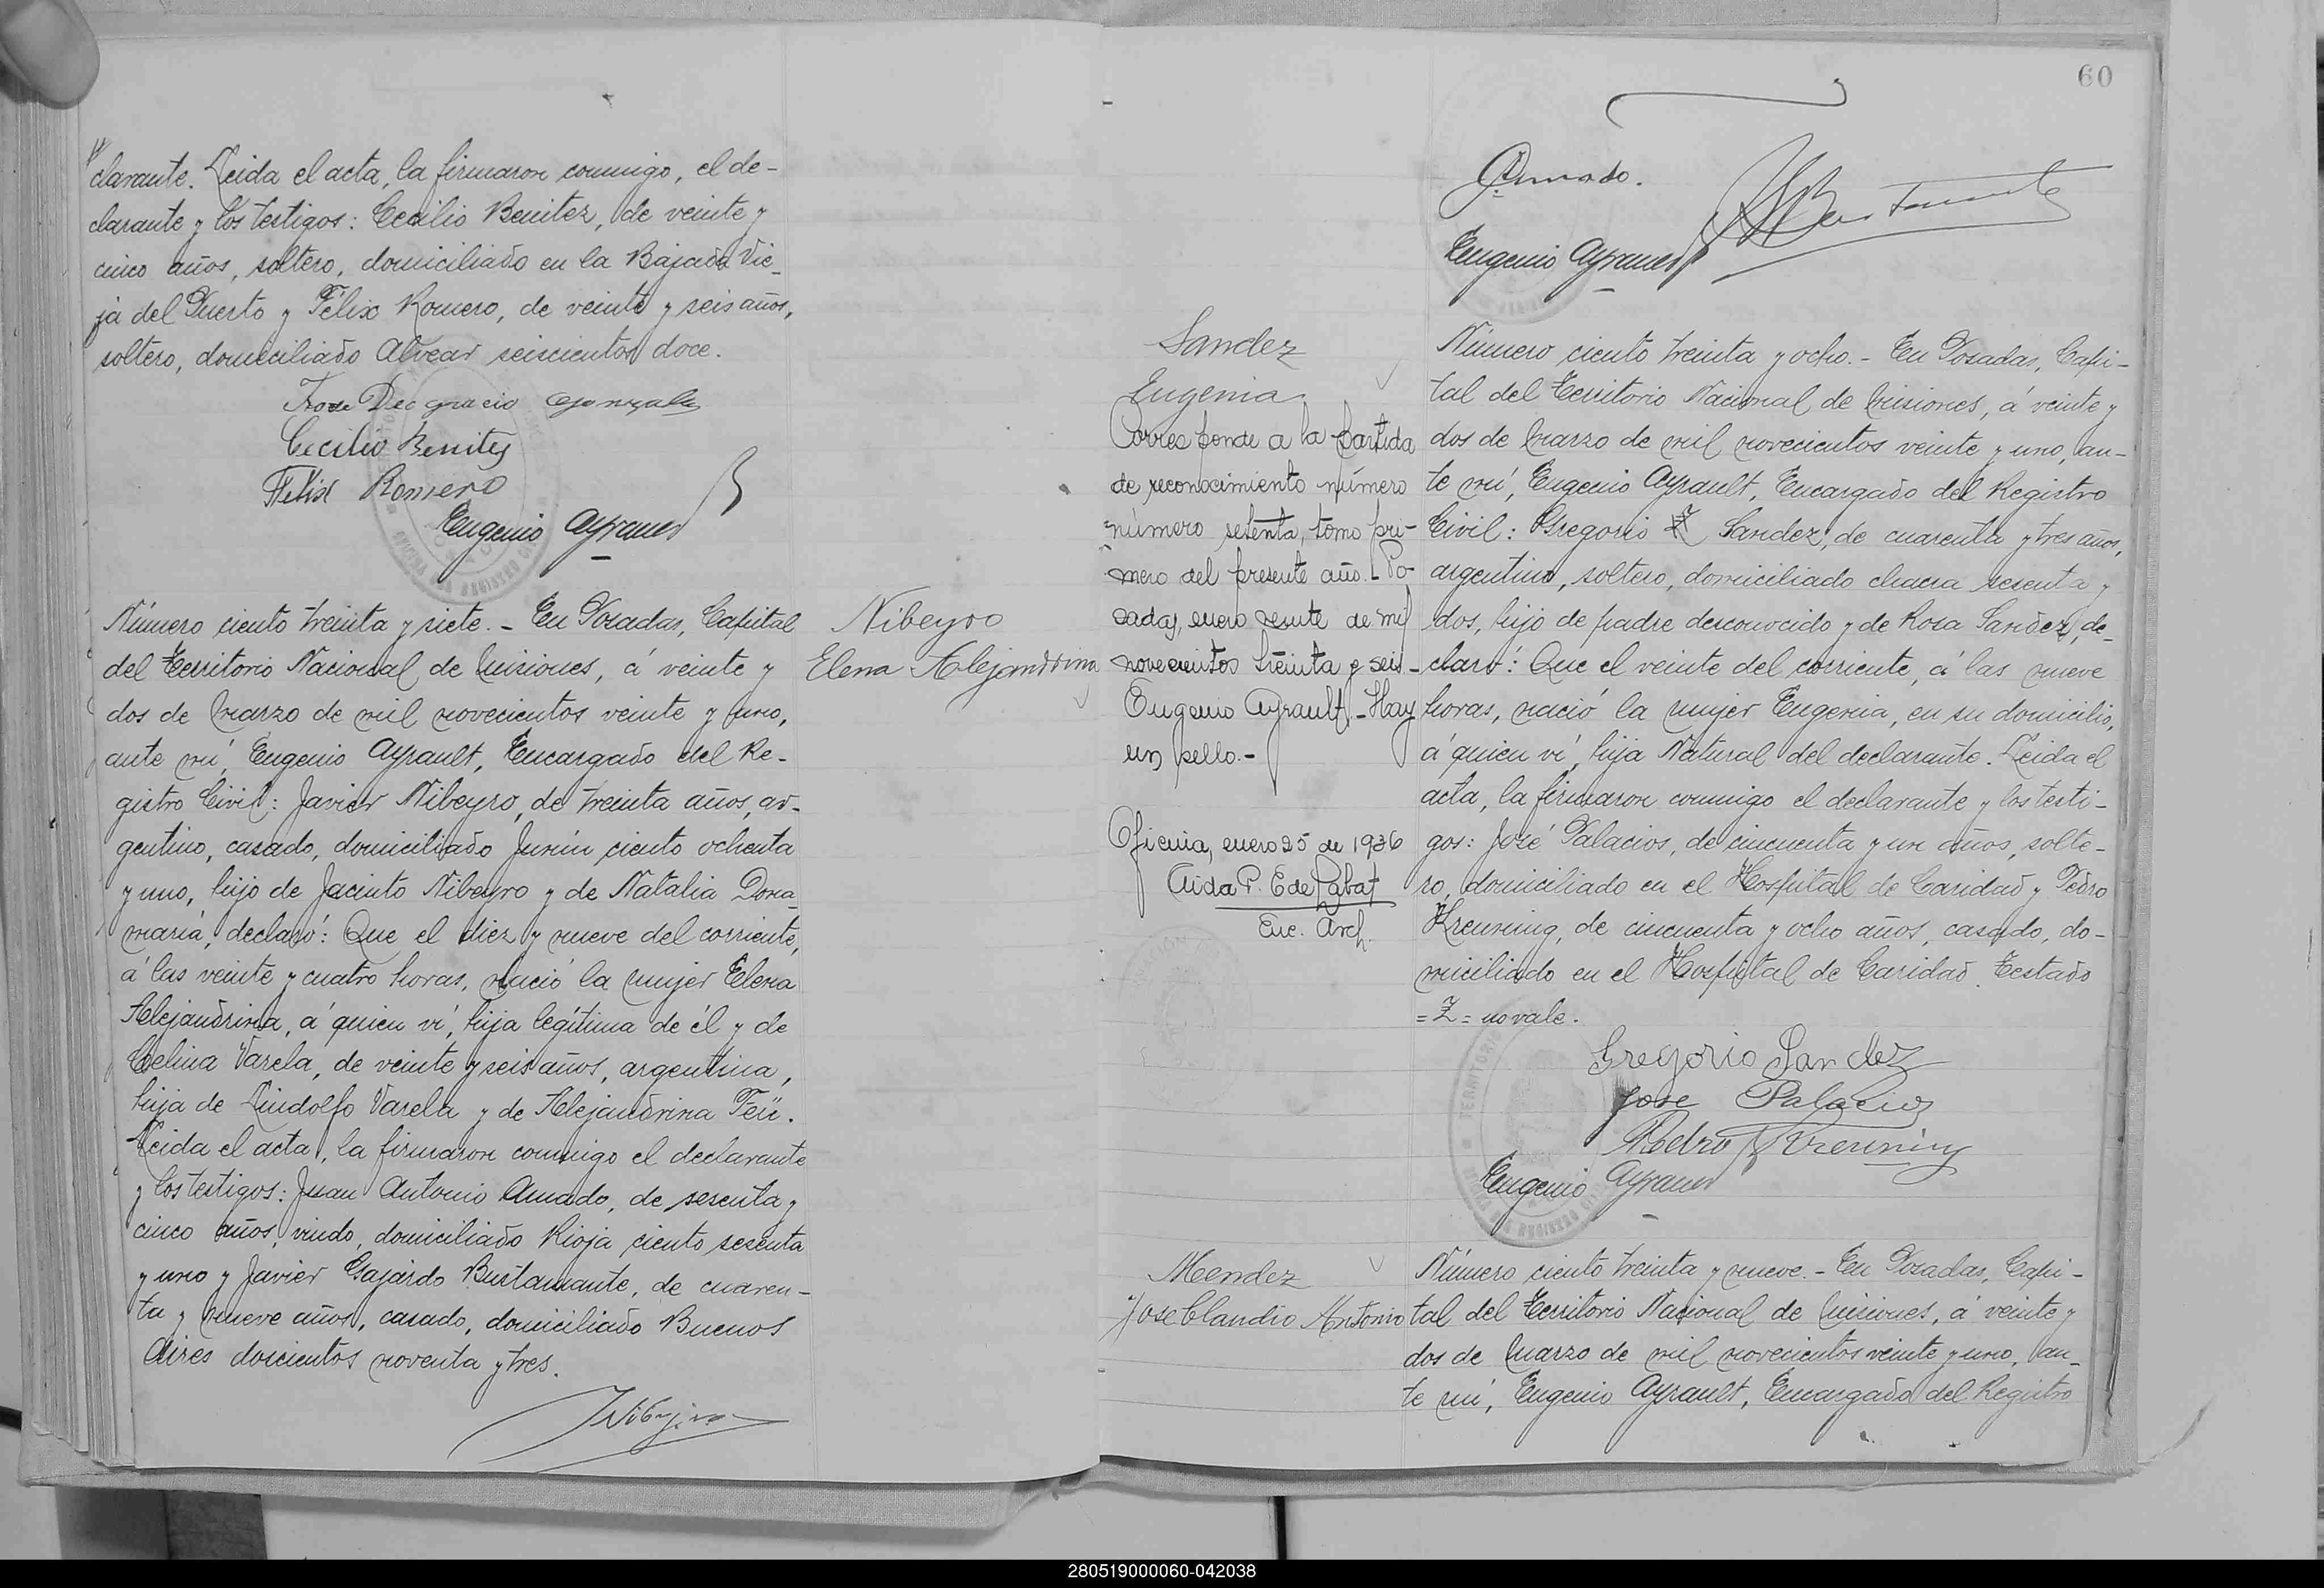 clarante. Leida el acta, la firmaron conmigo, el de-
clarante y los testigos: Cecilio Benitez, de veinte y
cinco años, soltero, domiciliado en la Bajada Vie-
ja del Puerto y Félix Romero, de veinte y seis años,
soltero, domiciliado Alvear seiscientos doce.
Jose Deo gracio Gonzalez
Cecilio Benites
Felix Romero
Eugenio Ayrault
Número ciento treinta y siete. - En Posadas, Capital
del Territorio Nacional de Misiones, á veinte y
dos de Marzo de mil novecientos veinte y uno,
ante mí, Eugenio Ayrault, Encargado del Re-
gistro Civil: Javier Nibeyro, de treinta años, ar-
gentino, casado, domiciliado Junín ciento ochenta
y uno, hijo de Jacinto Nibeyro y de Natalia Dona-
maría, declaró: Que el diez y nueve del corriente,
á las veinte y cuatro horas, nació la mujer Elena
Alejandrina, á quien ví, hija legítima de él y de
Celina Varela, de veinte y seis años, argentina,
hija de Lindolfo Varela y de Alejandrina
Leida el acta, la firmaron conmigo el declarante
y los testigos: Juan Antonio Amado, de sesenta y
cinco años, viudo, domiciliado Rioja ciento sesenta
y uno y Javier Gajardo Bustamante, de cuaren-
ta y nueve años, casado, domiciliado Buenos
Aires doscientos noventa y tres.
JNibeyro
Nibeyro
Elena Alejandrina
60
Amado.
Bustamante
Eugenio Ayrault
Sandez
Eugenia
Corresponde a la partida
de reconocimiento número
número setenta, tomo pri-
mero del presente año. - Po-
sadas, enero veinte de mil
novecientos treinta y seis -
Eugenio Ayrault. - Hay
un sello. -
Oficina, enero 25 de 1936
Aida P. E de
Enc. Arch.
Número ciento treinta y ocho. - En Posadas, Capi-
tal del Territorio Nacional de Misiones, á veinte y
dos de Marzo de mil novecientos veinte y uno, an-
te mí, Eugenio Ayrault, Encargado del Registro
Civil: Gregorio Z Sandez, de cuarenta y tres años,
argentino, soltero, domiciliado chacra sesenta y
dos, hijo de padre desconocido y de Rosa Sandez, de-
claró: Que el veinte del corriente, á las nueve
horas, nació la mujer Eugenia, en su domicilio,
á quien ví, hija Natural del declarante. Leida el
acta, la firmaron conmigo el declarante y los testi-
gos: José Palacios, de cincuenta y un años, solte-
ro, domiciliado en el Hospital de Caridad y Pedro
Krenning, de cincuenta y ocho años, casado, do-
miciliado en el Hospital de Caridad. Testado
= Z = no vale.
Gregorio Sandez
Jose Palacios
Pedro Krenning
Eugenio Ayrault
Mendez
Jose Claudio Antonio
Número ciento treinta y nueve. - En Posadas, Capi-
tal del Territorio Nacional de Misiones, á veinte y
dos de Marzo de mil novecientos veinte y uno, an-
te mí, Eugenio Ayrault, Encargado del Registro
280519000060-042038